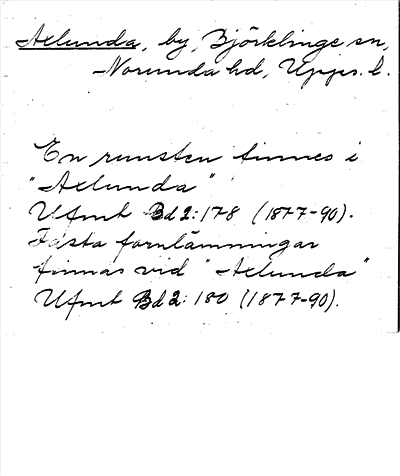 Axlunda, by, Björklinge sn,
Norunda hd, Upps. l.
En runsten finnes i
"Axlunda"
Ufmt Bd 2: 178 (1877-90).
Fasta fornlämningar
finnas vid "Axlunda"
Ufmt Bd 2: 180 (1877-90).